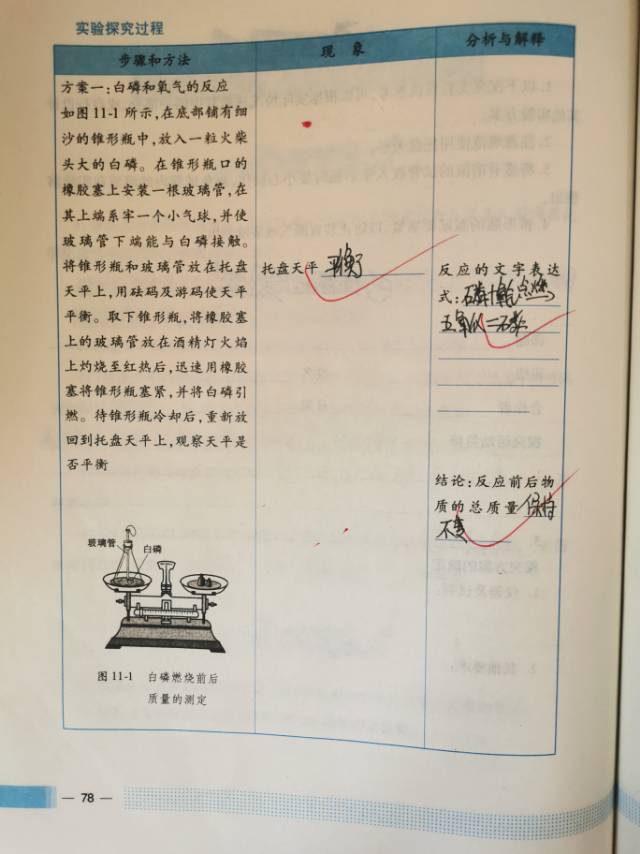 实验探究过程
步骤和方法
现 象
分析与解释
方案一:白磷和氧气的反应
如图11-1所示,在底部铺有细
沙的锥形瓶中,放入一粒火柴
头大的白磷。在锥形瓶口的
橡胶塞上安装一根玻璃管,在
其上端系牢一个小气球,并使
玻璃管下端能与白磷接触。
将锥形瓶和玻璃管放在托盘
天平上,用砝码及游码使天平
平衡。取下锥形瓶,将橡胶塞
上的玻璃管放在酒精灯火焰
上灼烧至红热后,迅速用橡胶
塞将锥形瓶塞紧,并将白磷引
燃。待锥形瓶冷却后,重新放
回到托盘天平上,观察天平是
否平衡
玻璃管
白磷
图 11-1 白磷燃烧前后
质量的测定
托盘天平 平衡了
反应的文字表达
式:磷+氧气点燃
五氧化二磷
结论:反应前后物
质的总质量保持
不变
— 78 —